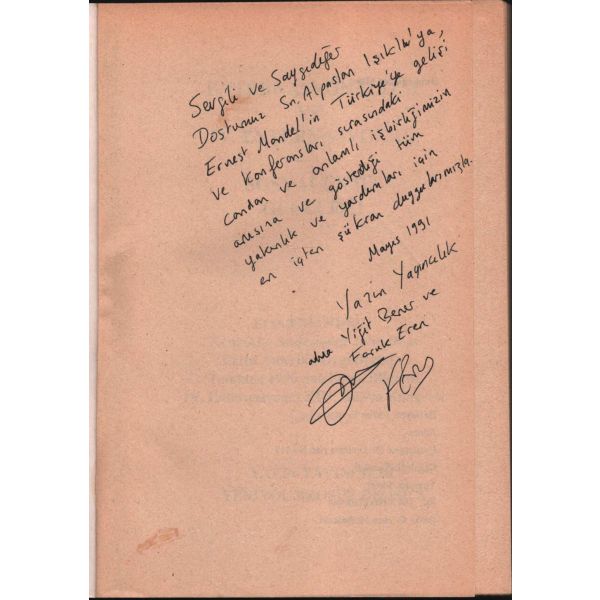 Sevgili ve Saygıdeğer
Dostumuz Sn. Alpaslan Işıklı'ya,
Ernest Mandel'in Türkiye'ye gelişi
ve Konferansları sırasındaki
candan ve anlamlı işbirliğimizin
anısına ve gösterdiği tüm
yakınlık ve yardımları için
en içten şükran duygularımızla.
Mayıs 1991
Yazın Yayıncılık
adına Yiğit Bener ve
Faruk Eren